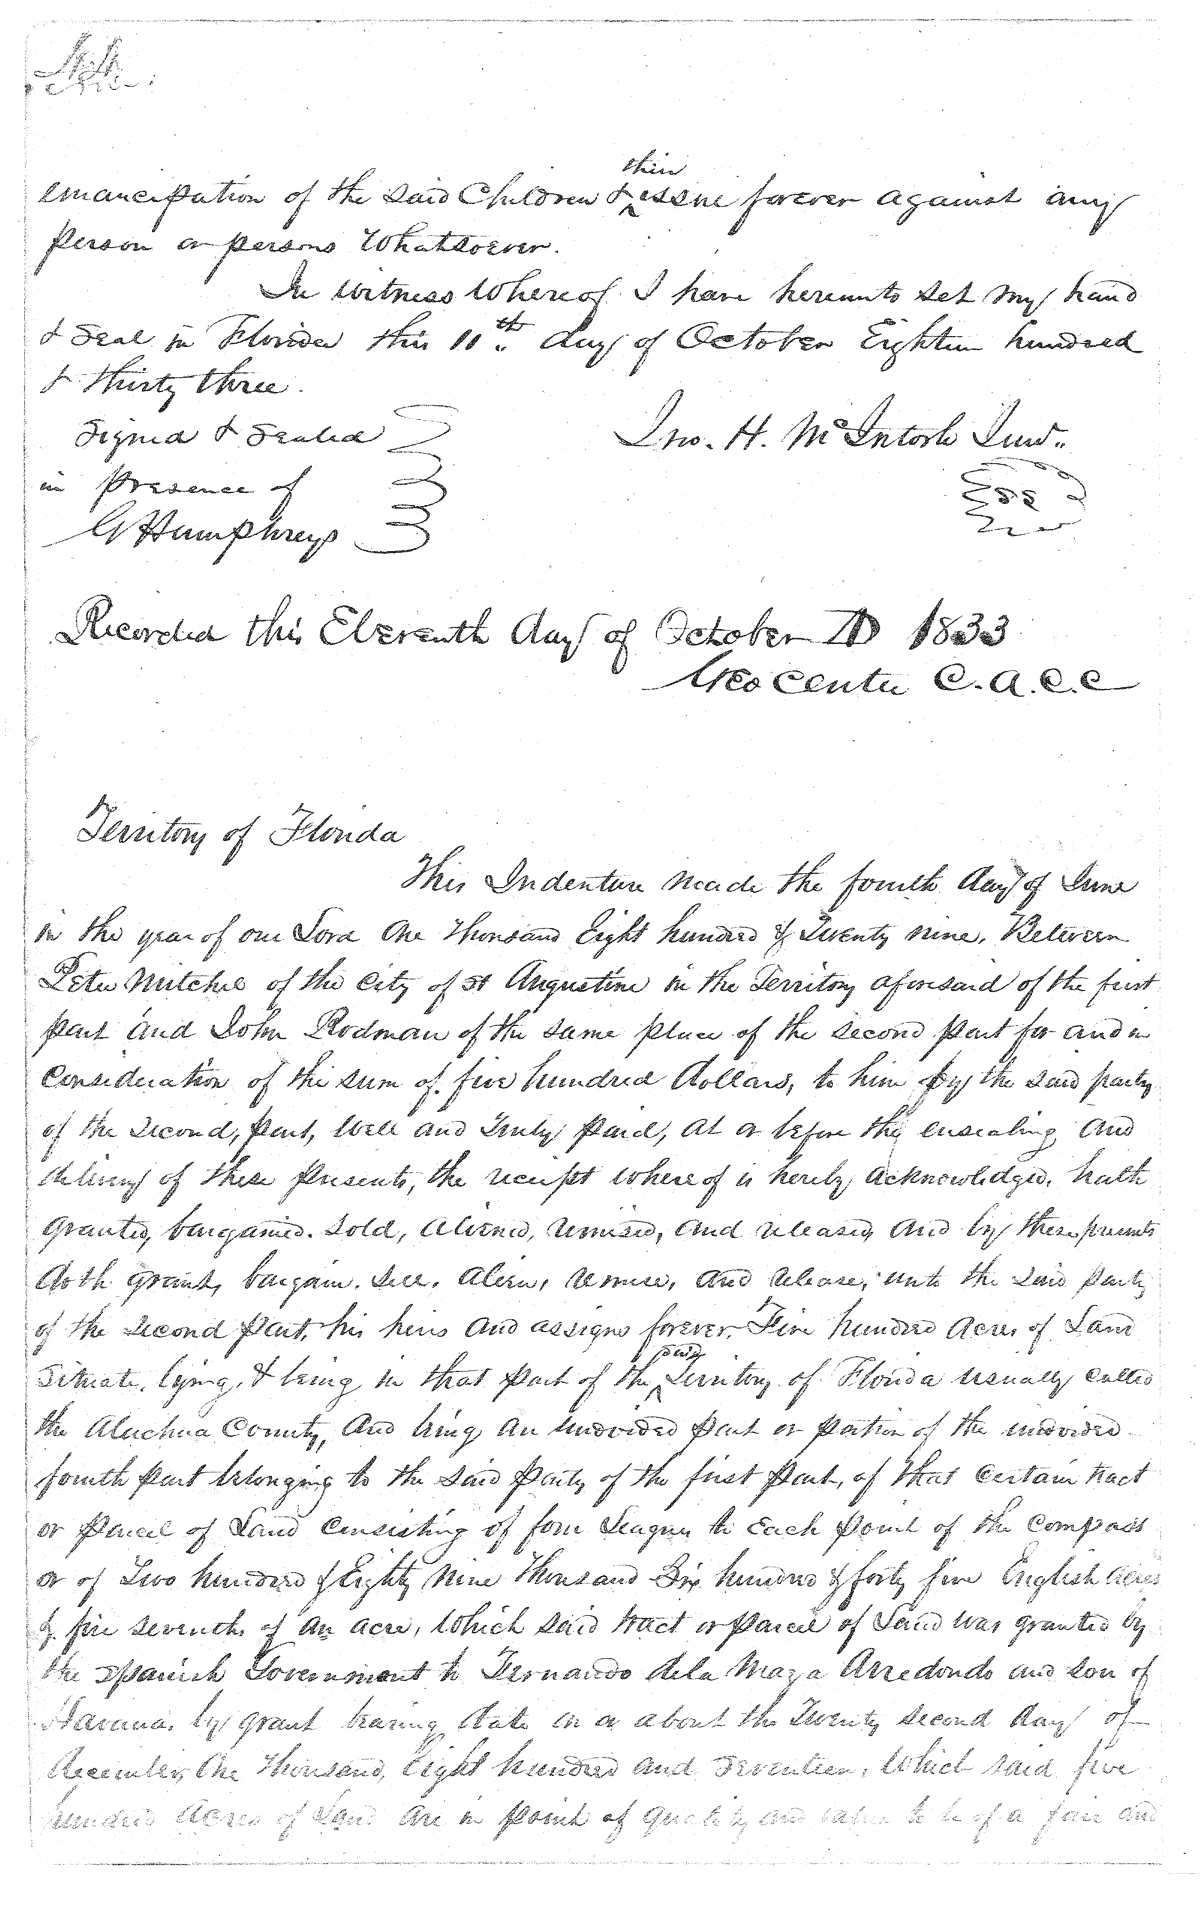 emancipation of the said Children & their issue forever against any
person or persons Whatsoever.
In witness Whereof I have hereunto set my hand
& seal in Florida this 11th day of October Eighteen hundred
& thirty three.
Signed & Sealed
in presence of
G Humphreys
Jno. H. McIntosh Junr.
Recorded this Eleventh day of October AD 1833
Geo Center C.A.C.C
Territory of Florida
This Indenture made the fourth day of June
in the year of our Lord One thousand Eight hundred & Twenty nine, Between
Peter Mitchel of the City of St Augustine in the Territory aforesaid of the first
part and John Rodman of the same place of the second part for and in
Consideration of the sum of five hundred dollars, to him by the said party
of the Second, part, Well and Truly paid, at or before the ensealing and
delivery of these presents, the receipt whereof is hereby acknowledged, hath
granted, bargained, sold, aliened, remised, and released, and by these presents
doth grant, bargain, sell, alien, remise, and release, unto the said party
of the second part, his heirs and assigns forever, Five hundred Acres of Land
situate, lying, & being in that part of the said Territory of Florida usually called
the Aluchua County, And being an undivided part or portion of the undivided
fourth part belonging to the said party of the first part, of that certain tract
or parcel of Land Consisting of four Leagues to Each point of the compass
or of Two hundred & Eighty Nine thousand Six hundred & forty five English acres
& five sevenths of an acre, Which said tract or parcel of Land was granted by
the Spanish Government to Fernando dela Maza Arredondo and son of
Havana, by grant bearing date on or about the Twenty second day of
December, One thousand, Eight hundred and Seventeen, Which said five
hundred Acres of Land are in point of quality and value to be of a fair and